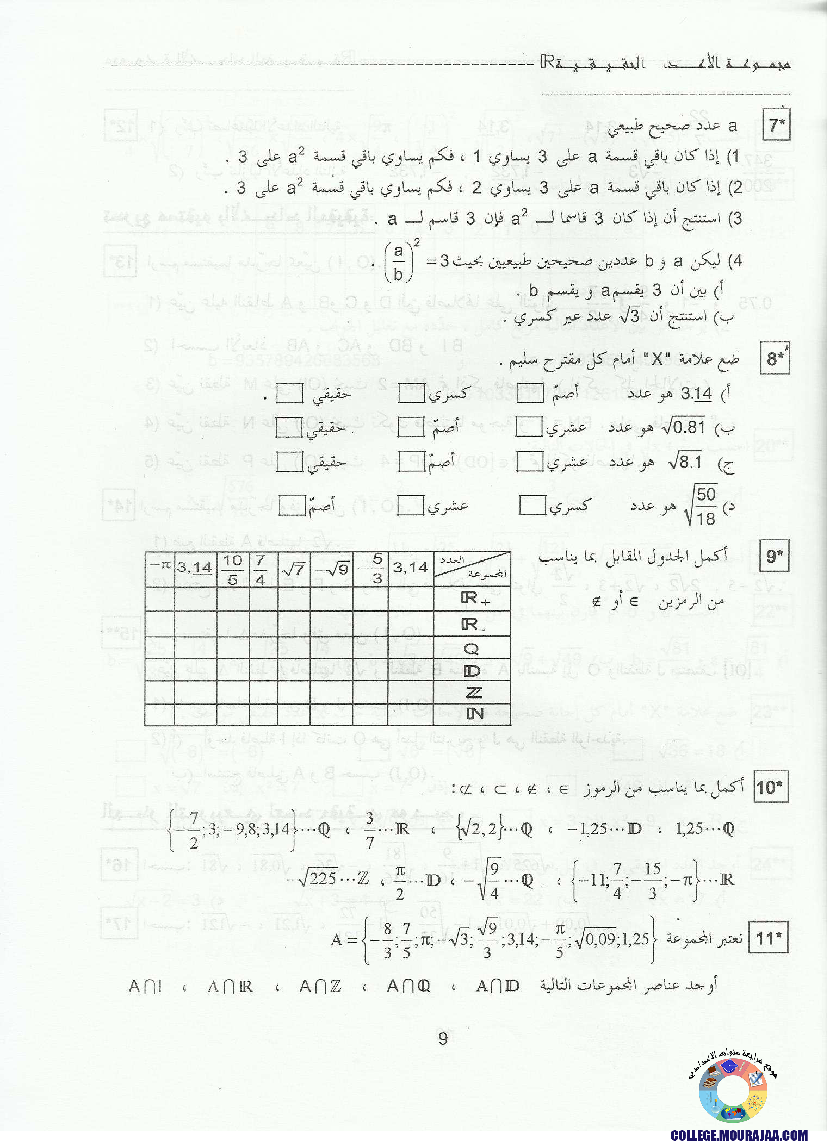 مجموعة الأعداد الحقيقية ℝ
7*
a عدد صحيح طبيعي
1) إذا كان باقي قسمة a على 3 يساوي 1 ، فكم يساوي باقي قسمة a² على 3 .
2) إذا كان باقي قسمة a على 3 يساوي 2 ، فكم يساوي باقي قسمة a² على 3 .
3) استنتج أن إذا كان 3 قاسما لـ a² فإن 3 قاسم لـ a .
4) ليكن a و b عددين صحيحين طبيعيين بحيث 3 = (a/b)² .
أ) بين أن 3 يقسم a و يقسم b .
ب) استنتج أن √3 عدد غير كسري .
8*
ضع علامة "X" أمام كل مقترح سليم .
أ) 3.14 هو عدد أصمّ □ كسري □ حقيقي □ .
ب) √0.81 هو عدد عشري □ أصمّ □ حقيقي □ .
ج) √8.1 هو عدد عشري □ أصمّ □ حقيقي □
د) √(50/18) هو عدد كسري □ عشري □ أصمّ □
9*
أكمل الجدول المقابل بما يناسب
من الرمزين ∈ أو ∉
العدد المجموعة 3,14 -5/3 -√9 √7 7/4 10/5 3,14 -π
ℝ+
ℝ-
ℚ
𝔻
ℤ
ℕ
10*
أكمل بما يناسب من الرموز ∈ ، ∉ ، ⊂ ، ⊄ :
1,25...ℚ ، -1,25...𝔻 ، {√2,2}...ℚ ، 3/7...ℝ ، {-7/2;3;-9,8;3,14}...ℚ
{-11;7/4;-15/3;-π}...ℝ ، -√(9/4)...ℚ ، π/2...𝔻 ، -√225...ℤ
11*
نعتبر المجموعة A={-8/3;7/5;π;-√3;√9/3;3,14;-π/5;√0,09;1,25}
أوجد عناصر المجموعات التالية A∩𝔻 ، A∩ℚ ، A∩ℤ ، A∩ℝ ، A∩I
9
موقع مراجعة منهاج الاعدادية
COLLEGE.MOURAJAA.COM